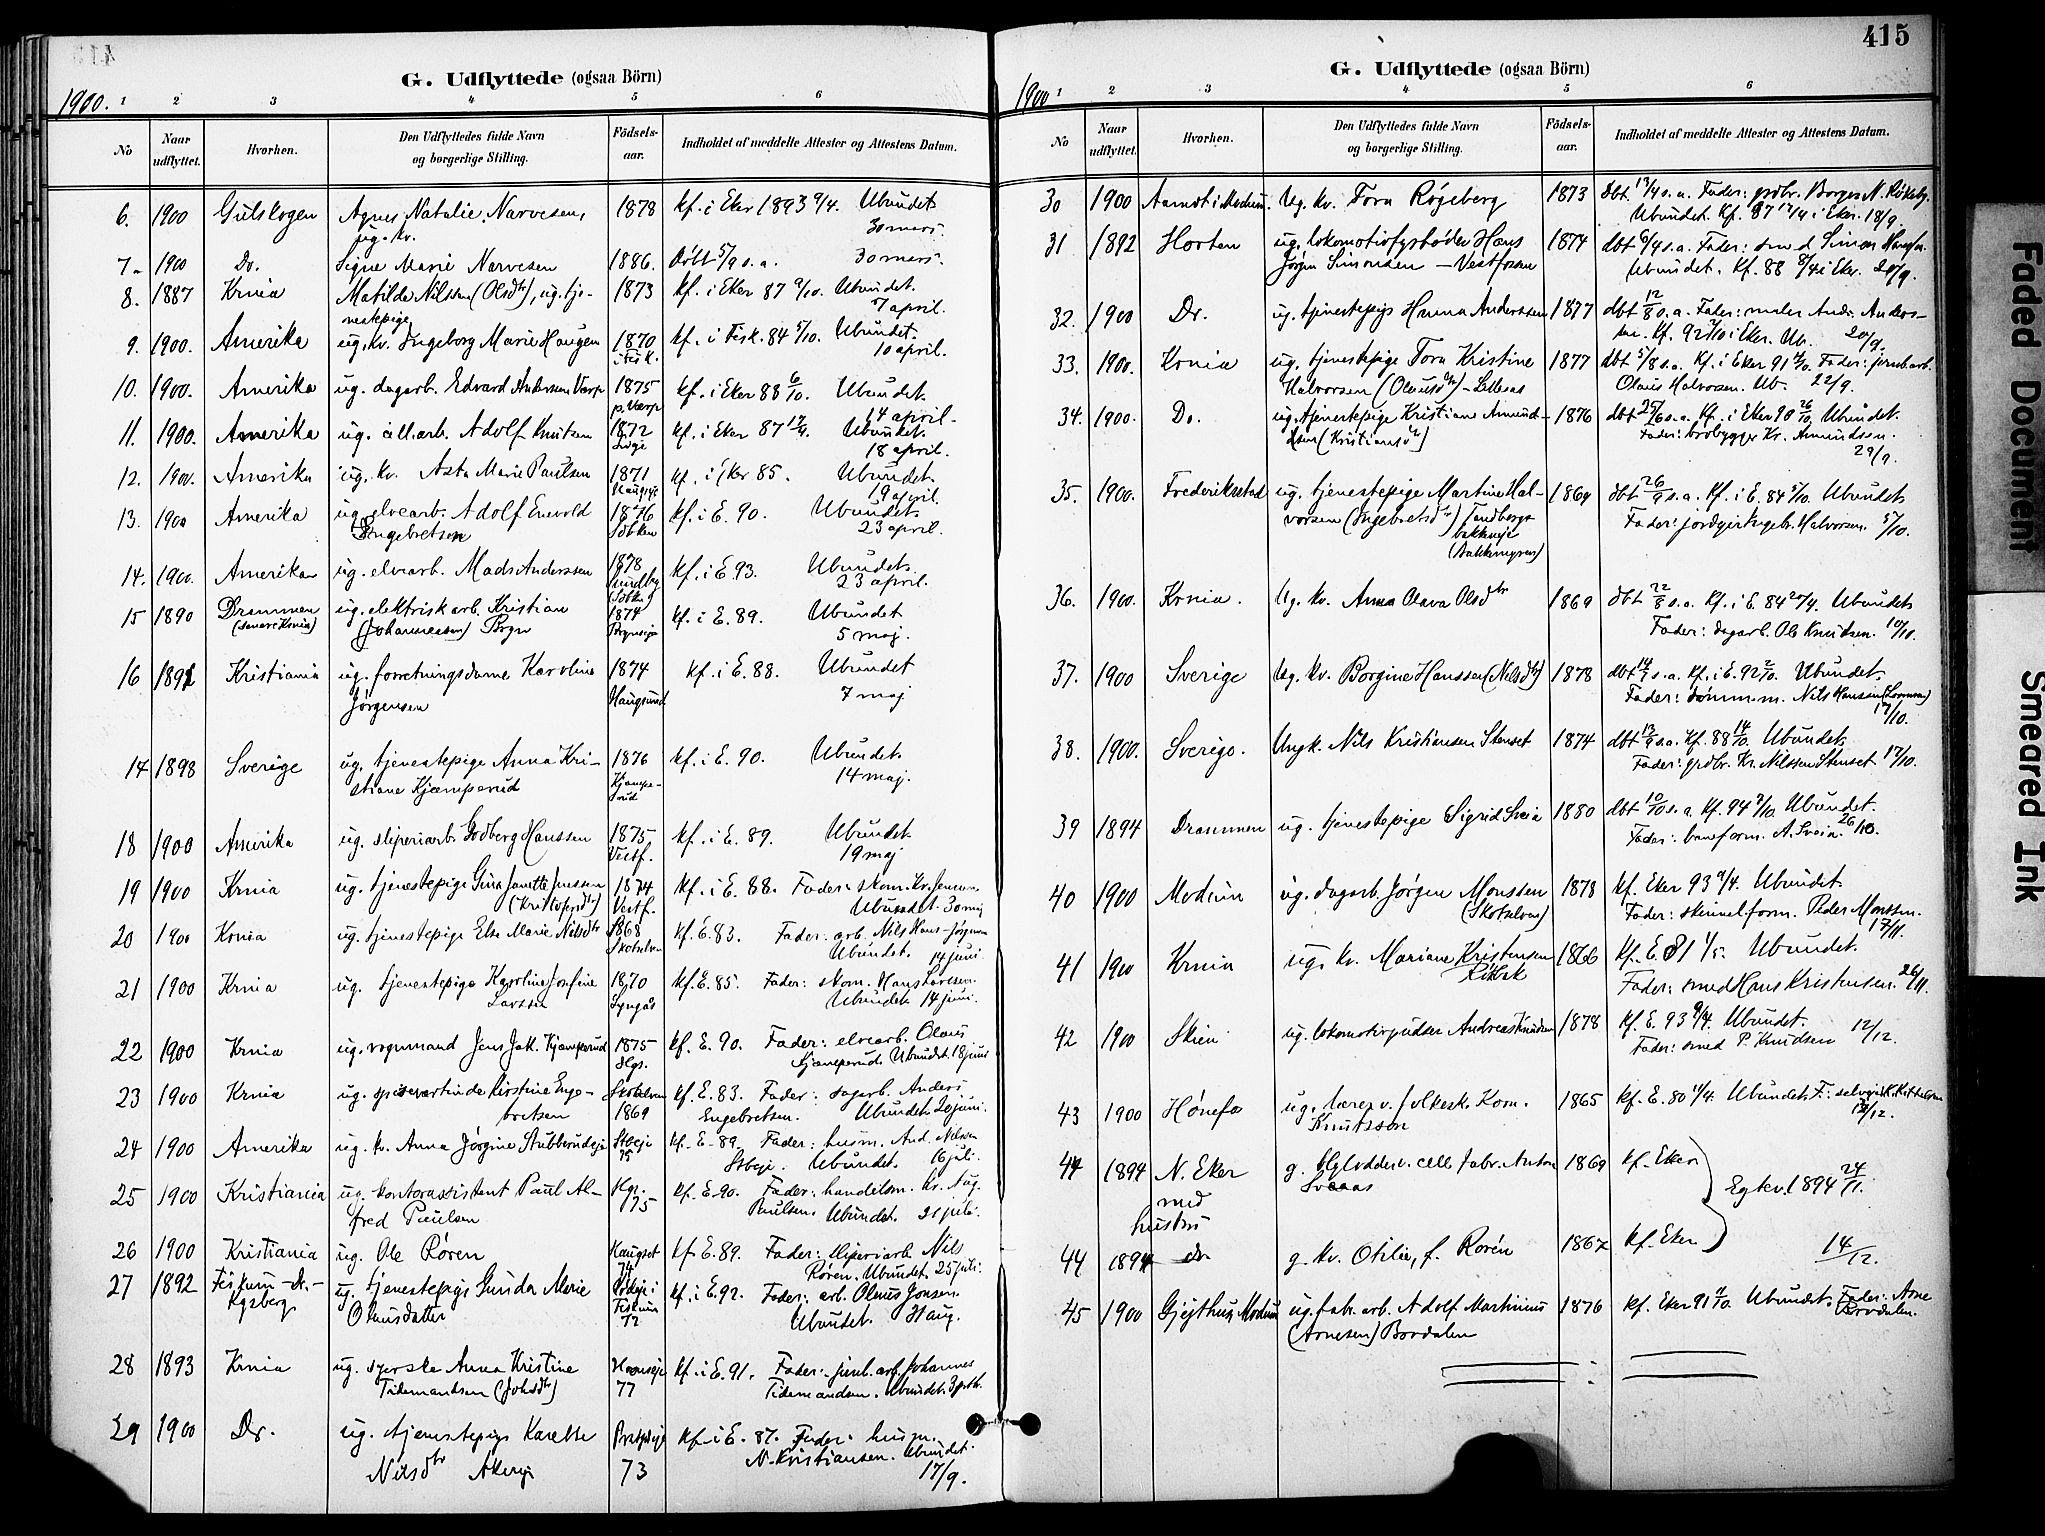 G. Udflyttede (ogsaa Börn)
1900.
1 2 3 4 5 6
No
Naar udflyttet.
Hvorhen.
Den Udflyttedes fulde Navn og borgerlige Stilling.
Födsels-aar.
Indholdet af meddelte Attester og Attestens Datum.
6. 1900 Gulskogen Agnes Natalie Narvesen, 1878 kf. i Eker 1893 9/4. Ubundet
ug. kv. 30 mars.
7. 1900 Do. Signe Marie Narvesen 1886. Døbt 5/9 s. a. 30 mars.
8. 1887 Krnia Matilde Nilssen (Olsdtr), ug. tje- 1873 kf. i Eker 87 9/10. Ubundet.
nestepige 7 april.
9. 1900. Amerika ug. kv. Ingeborg Marie Haugen 1870 kf. i Fisk. 84 5/10. Ubundet.
i Fisk. 10 april.
10. 1900. Amerika ug. dagarb. Edvard Andersen Værp 1875 kf. i Eker 88 6/10. Ubundet.
p. Værp 14 april.
11. 1900. Amerika ug. all. arb. Adolf Knutsen 1872 kf. i Eker 87 17/4. Ubundet.
18 april.
12. 1900. Amerika ug. kv. Asta Marie Paulsen 1871 kf. i Eker 85. Ubundet.
19 april.
13. 1900 Amerika ug. elvearb. Adolf Enevold 1876 kf. i E. 90. Ubundet.
Engebretsen 23 april.
14. 1900. Amerika ug. elvearb. Mads Anderssen 1878 kf. i E. 93. Ubundet.
23 april.
15 1890 Drammen ug. elektrisk arb. Kristian 1874 kf. i E. 89. Ubundet
(senere Krnia) (Johannessen) Bryn 5 maj.
16 1892 Kristiania ug. forretningsdame Karoline 1874 kf. i E. 88. Ubundet
Jörgensen Haugsund 7 maj
17 1898 Sverige ug. tjenestepige Anna Kri- 1876 kf. i E. 90. Ubundet.
stiane Kjæmperud Kjæmpe-rud 14 maj.
18 1900 Amerika ug. sliperiarb. Godberg Hanssen 1875 kf. i E. 89. Ubundet.
Vestf. 19 maj
19 1900 Krnia ug. tjenestepige Gina Janette Jenssen 1874 kf. i E. 88. Fader: skom. Kr. Jensen
(Kristofersdtr) Vestf. Ubundet. 30 maj
20 1900 Krnia ug. tjenestepige Else Marie Nilsdtr 1868 kf. E. 83. Fader: arb. Nils Hans-Jörgensen
Skotselv. Ubundet. 14 juni.
21 1900 Krnia ug. tjenestepige Karoline Josefine 1870 kf. E. 85. Fader: skom. Hans Larssen.
Larssen Ubundet. 14 juni.
22 1900 Krnia ug. vognmand Jens Jak. Kjæmperud 1875 kf. E. 90. Fader: elvearb. Olaus
Hgs. Kjæmperud. Ubundet. 18 juni
23 1900 Krnia ug. spisevertinde Kirstine Enge- Skotselven kf. E. 83. Fader: sagarb. Anders
bretsen 1869 Engebretsen. Ubundet. 20 juni.
24 1900 Amerika ug. kv. Anna Jörgine Stubberudeje kf. E. 89. Fader: husm. And. Nilssen
75 Ubundet. 16 juli.
25 1900 Kristiania ug. kontorassistent Paul Al- Hgs. kf. E. 90. Fader: handelsm. Kr. Aug.
fred Paulsen 75 Paulsen. Ubundet. 21 juli.
26 1900 Kristiania ug. Ole Rören Haugset kf. E. 89. Fader: sliperiarb. Nils
74 Rören. Ubundet. 25 juli.
27 1892 Fiskum – Dr. – ug. tjenestepige Gunda Marie kf. i E. 92. Fader: arb. Olaus Jonsen.
Kgsberg Olausdatter Fiskum 72 Ubundet. 7 aug.
28 1893 Krnia ug. syerske Anna Kristine kf. i E. 91. Fader: jernb. arb. Johannes
Tidemandsen (Johsdtr) 77 Tidemandsen. Ubundet.
29 1900 Dr. ug. tjenestepige Karette kf. i E. 87. Fader: husm.
Nilsdtr Åkereje 73 N. Kristiansen. Ubundet.
17/9.
415
G. Udflyttede (ogsaa Börn)
1900
1 2 3 4 5 6
No
Naar udflyttet.
Hvorhen.
Den Udflyttedes fulde Navn og borgerlige Stilling.
Födsels-aar.
Indholdet af meddelte Attester og Attestens Datum.
30 1900 Aamot i Modum. Ug. kv. Tora Rögeberg 1873 dbt 13/4 s. a. Fader: grdbr. Borger N. Rökeberg.
Ubundet. Kf. 87 17/4 i Eker. 18/9.
31 1892 Horten ug. lokomotivfyrbøder Hans 1874 dbt 6/4 s. a. Fader: smed Simon
Jörgen Simonsen – Vestfossen Ubundet. Kf. 88 8/4 i Eker. 20/9.
32. 1900 Dr. ug. tjenestepige Hanna Anderssen 1877 dbt 12/8 s. a. Fader: maler Andr. Anders-
sen. Kf. 92 2/10 i Eker. Ub. 20/9.
33. 1900. Krnia ug. tjenestepige Tora Kristine 1877 dbt 5/8 s. a. Kf. i Eker 91 4/10. Fader: jernb. arb.
Halvorsen (Olausdtr) – Lilleaas Olaus Halvorsen. Ub. 22/9.
34. 1900. Do. ug. tjenestepige Kristiane Amund- 1876 dbt 25/6 s. a. Kf. i Eker 90 26/10 Ubundet.
dsen (Kristiansdtr) Fader: brobygger Kr. Amundsen.
29/9.
35. 1900. Frederikstad ug. tjenestepige Martine Hal- 1869 dbt 26/9 s. a. Kf. i E. 84 5/10. Ubundet
vorsen (Ingebretsdtr) Tandbergs- Fader: Ingebr. Halvorsen. 5/10.
bakkeeje
(Bakkemyren)
36. 1900. Krnia. Ug. kv. Anna Olava Olsdtr 1869 dbt 22/8 s. a. Kf. i E. 84 20/4. Ubundet
Fader: dagarb. Ole Knudsen. 10/10.
37. 1900 Sverige Ug. kv. Borgine Hanssen (Nilsdtr) 1878 dbt 14/7 s. a. Kf. i E. 92 2/10. Ubundet.
Fader: tömmerm. Nils Hanssen
17/10.
38. 1900. Sverige. Ungk. Nils Kristiansen Stenset 1874 dbt 13/9 s. a. Kf. 88 14/10. Ubundet.
Fader: grdbr. Kr. Nilssen Stenset. 17/10.
39 1894 Drammen ug. tjenestepige Sigrid Sveia 1880 dbt 10/10 s. a. Kf. 94 7/10. Ubundet.
Fader: baneform. A. Sveia. 26/10.
40 1900 Modum ug. dagarb. Jörgen Monssen 1878 kf. Eker 93 9/4. Ubundet.
(Skotselven) Fader: form. Peder Monssen.
17/11.
41 1900 Krnia ug. kv. Mariane Kristensen 1866 Kf. E. 81 1/5. Ubundet.
Fader: smed Hans Kristensen. 26/11.
42 1900 Skien ug. lokomotivpudser Andreas Knudsen 1878 Kf. E. 93 9/4. Ubundet.
Fader: smed P. Knudsen 12/12.
43 1900 Hönefos ug. lærer v. folkesk. Korn. 1865 kf. E. 80 11/4. Ubundet. F: selvej. K.
Knutsson /12.
44 1894 N. Eker g. cell. fabr. Anton 1869 kf. Eker
med
hustru
Egtev. 1894 24/11.
44 1894 do g. kv. Otilie, f. Rorén 1867 kf. Eker 14/12.
45 1900 Gjethus, Modum ug. fabr. arb. Adolf Martinius 1876 kf. Eker 91 4/10. Ubundet. Fader: Arne
(Arnesen) Bordalen Bordalen.
Faded Document
Smeared Ink